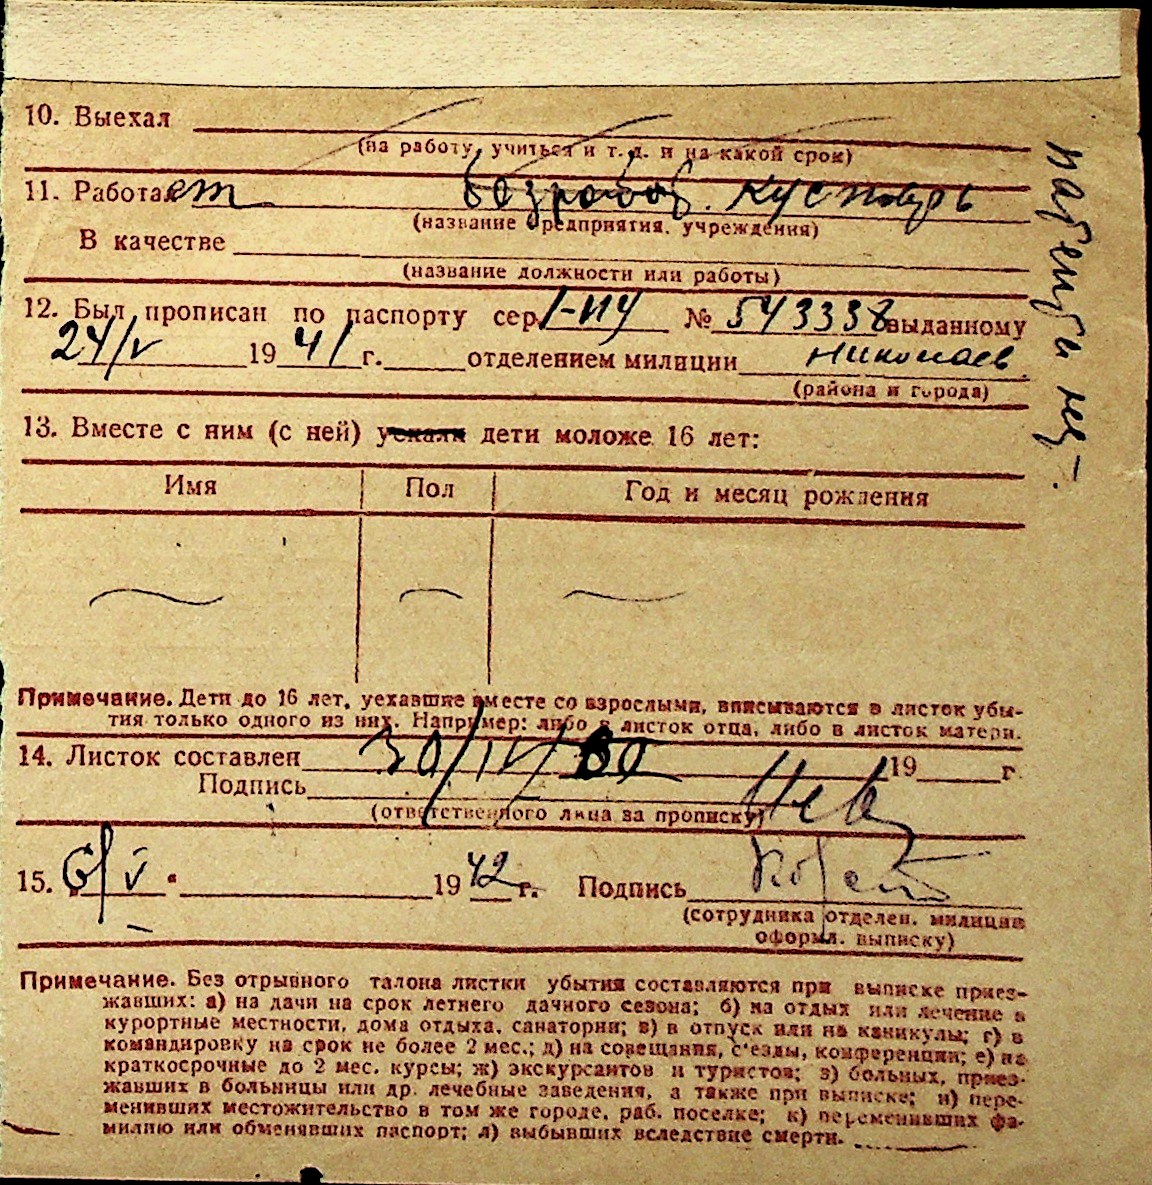 10. Выехал
(на работу, учиться и т. д. и на какой срок)
11. Работает безработ. кустарь
(название предприятия, учреждения)
В качестве
(название должности или работы)
12. Был прописан по паспорту сер. I-ПУ № 543338 выданному
24/V 1941 г. отделением милиции Николаев
(района и города)
13. Вместе с ним (с ней) уехали дети моложе 16 лет:
Имя Пол Год и месяц рождения
Примечание. Дети до 16 лет, уехавшие вместе со взрослыми, вписываются в листок убы-
тия только одного из них. Например: либо в листок отца, либо в листок матери.
14. Листок составлен 30/IV 19 г.
Подпись
(ответственного лица за прописку)
15. 6/V 1942 г. Подпись
(сотрудника отделен. милиции
оформл. выписку)
Примечание. Без отрывного талона листки убытия составляются при выписке приез-
жавших: а) на дачи на срок летнего дачного сезона; б) на отдых или лечение в
курортные местности, дома отдыха, санатории; в) в отпуск или на каникулы; г) в
командировку на срок не более 2 мес.; д) на совещания, с'езды, конференции; е) на
краткосрочные до 2 мес. курсы; ж) экскурсантов и туристов; з) больных, приез-
жавших в больницы или др. лечебные заведения, а также при выписке; и) пере-
менивших местожительство в том же городе, раб. поселке; к) переменивших фа-
милию или обменявших паспорт; л) выбывших вследствие смерти.